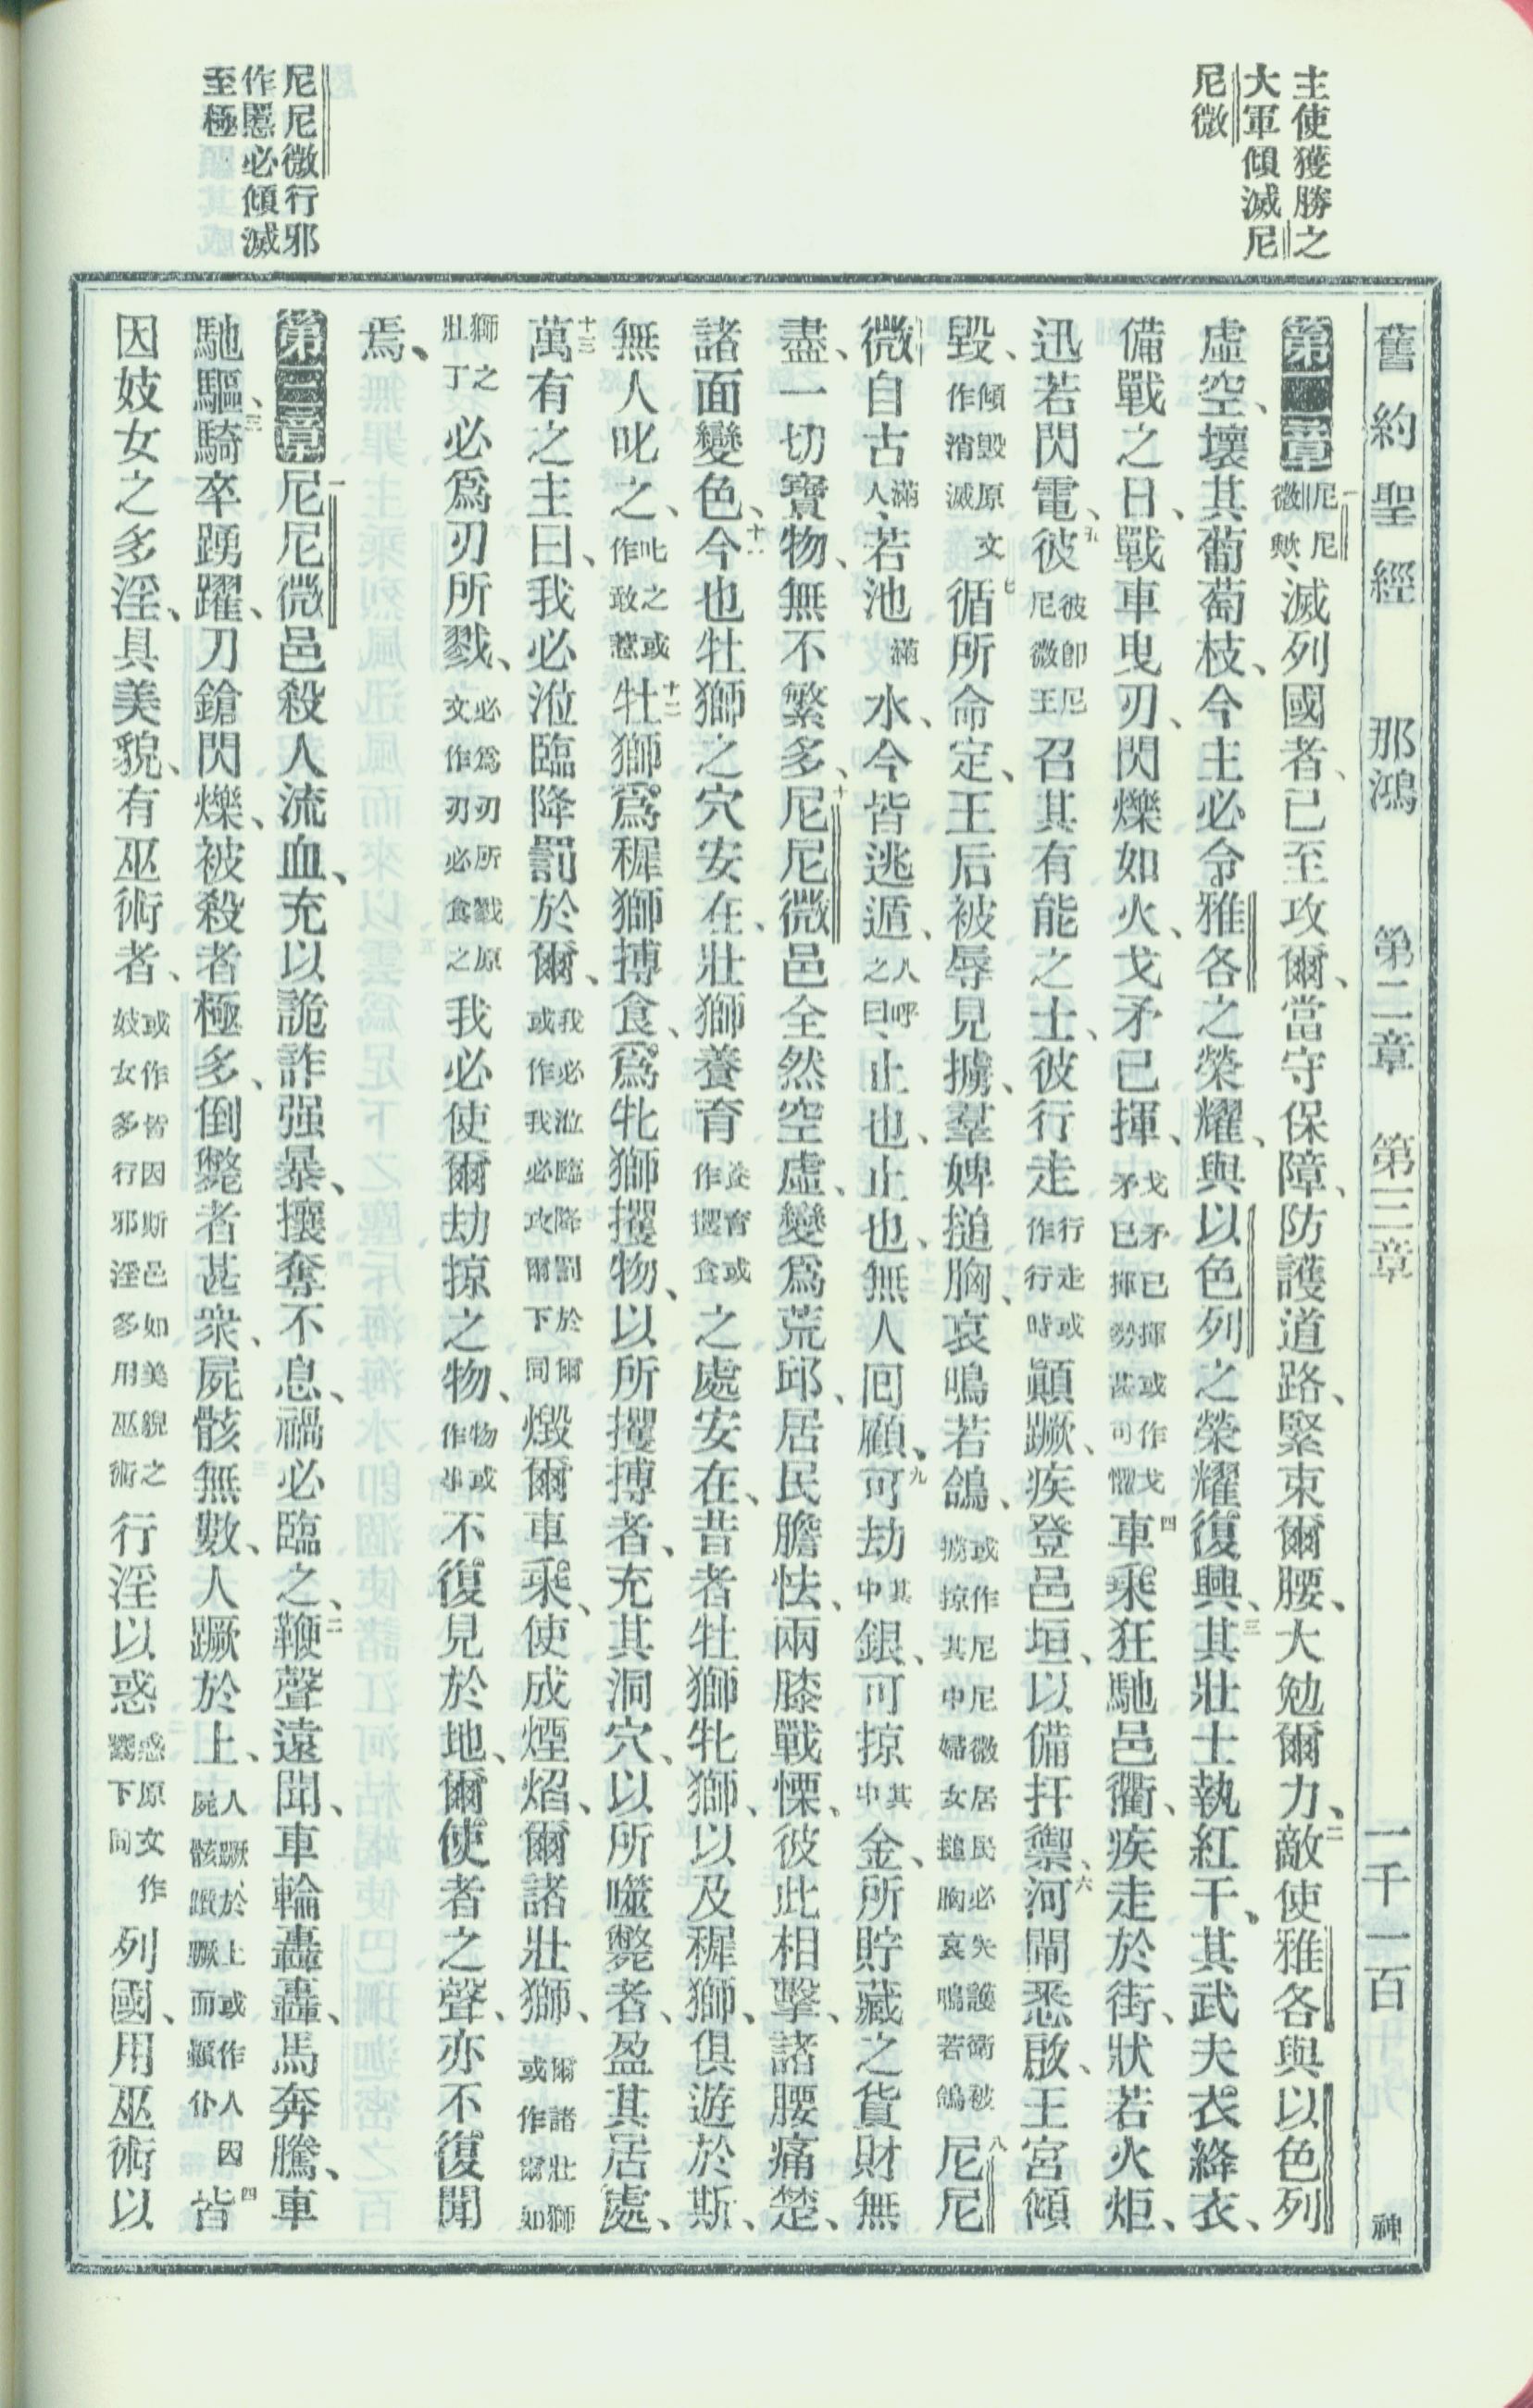 舊約聖經　那鴻　第二章　第三章　一千一百　神
主使獲勝之
大軍傾滅尼
尼微
第二章一尼尼微歟、滅列國者、已至攻爾、當守保障、防護道路、緊束爾腰、大勉爾力、二敵使雅各與以色列
虛空、壞其葡萄枝、今主必令雅各之榮耀、與以色列之榮耀復興、三其壯士執紅干、其武夫衣絳衣、
備戰之日、戰車曳刃、閃爍如火、戈矛已揮、戈矛已揮或作戈矛已揮勢甚可懼四車乘狂馳邑衢、疾走於街、狀若火炬、
迅若閃電、五彼彼卽尼尼微王召其有能之士、彼行走行走或作行時顚蹶、疾登邑垣、以備扞禦、六河閘悉啟、王宮傾
毀、傾毀原文作消滅七循所命定、王后被辱見擄、羣婢搥胸、哀鳴若鴿、或作尼尼微居民必失護衛被擄掠其中婦女搥胸哀鳴若鴿八尼尼
微自古滿人、若池滿水、今皆逃遁、人呼之曰、止也、止也、無人回顧、九可劫其中銀、可掠其中金、所貯藏之貨財無
盡、一切寶物、無不繁多、十尼尼微邑全然空虛、變爲荒邱、居民膽怯、兩膝戰慄、彼此相擊、諸腰痛楚、
諸面變色、十一今也牡獅之穴安在、壯獅養育養育或作攫食之處安在、昔者牡獅牝獅、以及穉獅、俱遊於斯、
無人叱之、叱之或作敢惹十二牡獅爲穉獅搏食、爲牝獅攫物、以所攫搏者、充其洞穴、以所噬斃者、盈其居處、
十三萬有之主曰、我必涖臨降罰於爾、我必涖臨降罰於爾或作我必攻爾下同燬爾車乘、使成煙焰、爾諸壯獅、爾諸壯獅或作爾如
獅之壯丁必爲刃所戮、必爲刃所戮原文作刃必食之我必使爾劫掠之物、物或作事不復見於地、爾使者之聲、亦不復聞
焉、
第三章一尼尼微邑殺人流血、充以詭詐强暴、攘奪不息、禍必臨之、二鞭聲遠聞、車輪轟轟、馬奔騰、車
馳驅、三騎卒踴躍、刀鎗閃爍、被殺者極多、倒斃者甚衆、屍骸無數、人蹶於上、人蹶於上或作人因屍骸躓蹶而顚仆四皆
因妓女之多淫、具美貌、有巫術者、或作皆因斯邑如美貌之妓女多行邪淫多用巫術行淫以惑惑原文作鬻下同列國、用巫術以
尼尼微行邪
作慝必傾滅
至極